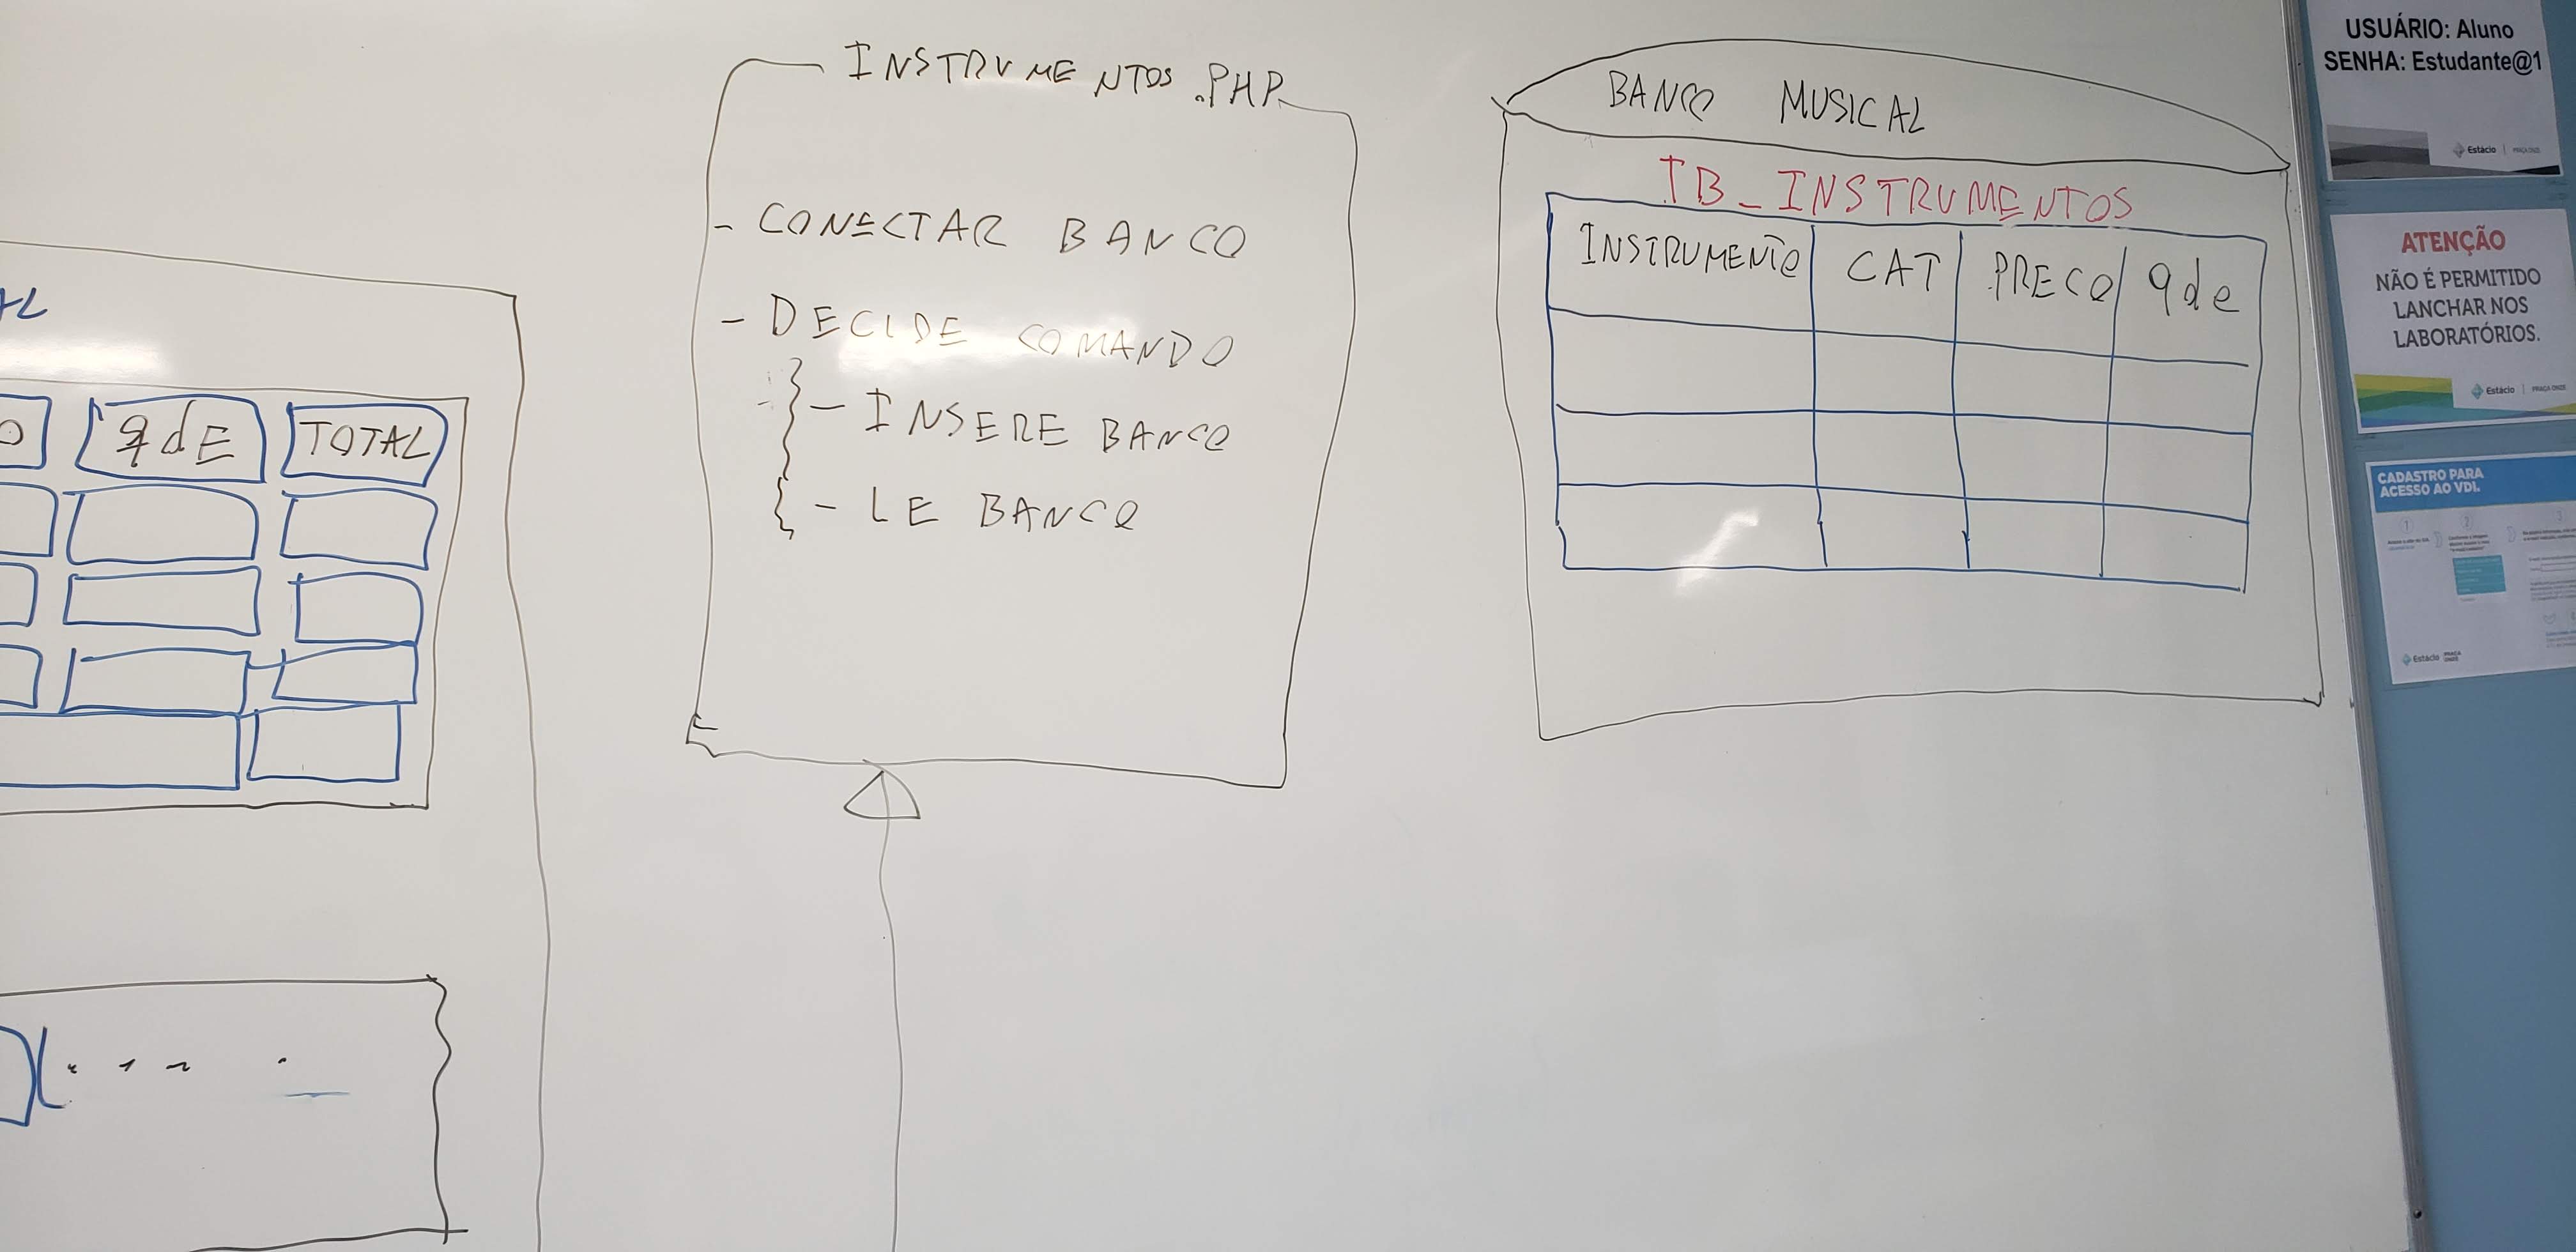 AL
qdE
TOTAL
INSTRUMENTOS.PHP
- CONECTAR BANCO
- DECIDE COMANDO
- INSERE BANCO
- LE BANCO
BANCO MUSICAL
TB_INSTRUMENTOS
INSTRUMENTO CAT PRECO qde
USUÁRIO: Aluno
SENHA: Estudante@1
Estácio | PRAÇA ONZE
ATENÇÃO
NÃO É PERMITIDO
LANCHAR NOS
LABORATÓRIOS.
Estácio | PRAÇA ONZE
CADASTRO PARA
ACESSO AO VDI.
1 2 3
Estácio PRAÇA ONZE